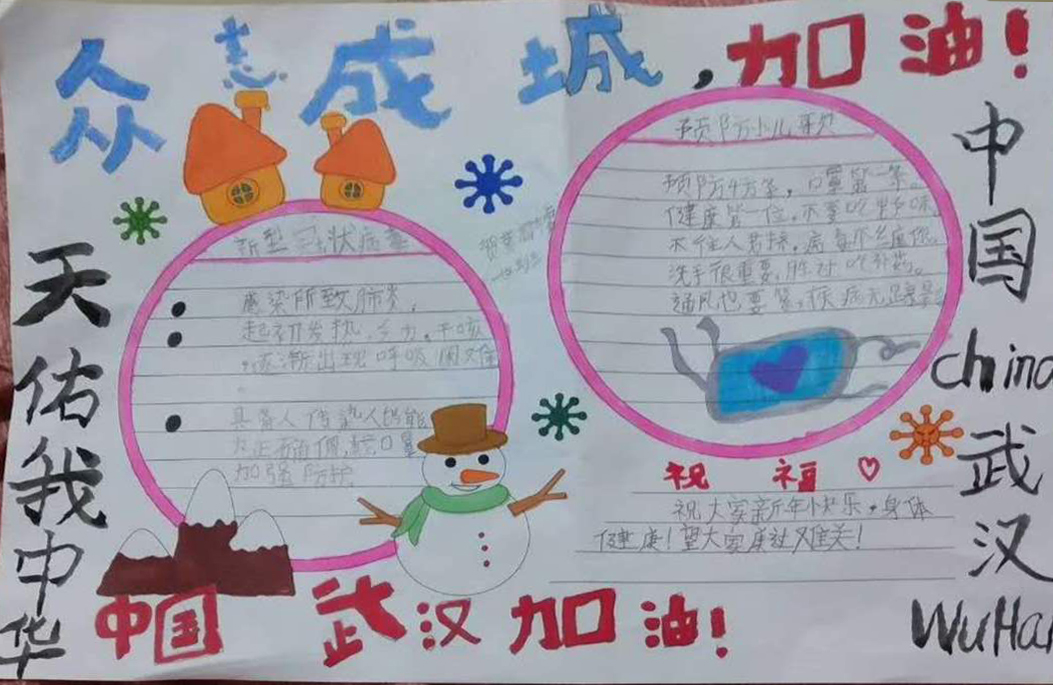 众志成城,加油!
天佑我中华
新型冠状病毒
感染所致肺炎,
起初发热,乏力,干咳
,逐渐出现呼吸困难
。
具备人传染人的能
力正确佩戴口罩
加强防护
预防小儿歌
预防千万条,口罩第一条。
健康第一位,不要吃野味
不往人
洗手很重要,
通风也要
祝 福
祝大家新年快乐,身体
健康!望大家度过难关!
中国 武汉加油!
中国
China
武汉
WuHan